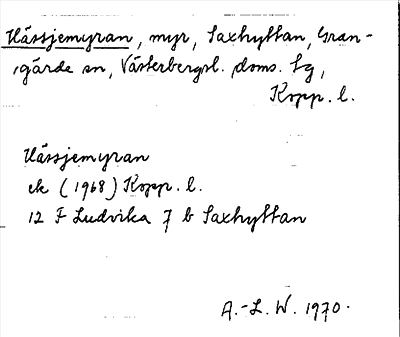 Hässjemyran, myr, Saxhyttan, Gran-
gärde sn, Västerbergsl. doms. tg,
Kopp. l.
Hässjemyran
ek (1968) Kopp. l.
12 F Ludvika 7 b Saxhyttan
A.-L. W. 1970.